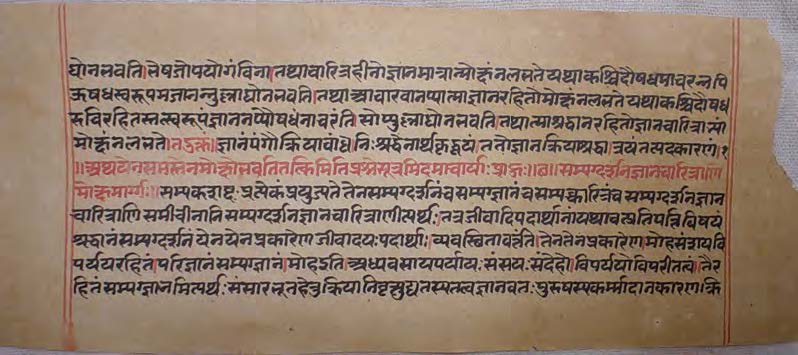 द्योनभवति। भेषजोपयोगंविना।तथाचारित्रहीनोज्ञानमात्रान्मोक्षंनलभते यथाकश्चिदौषधमाचरन्नपि
ऊषधस्वरूपमजानन्नुल्लाघोनभवति।तथाआचारवानप्यात्माज्ञानरहितोमोक्षंनलभते यथाकश्चिदौषध
रुचिरहितस्तत्स्वरूपंजानन्नप्यौषधंनाचरति। सोप्युल्लाघोनभवति।तथात्माश्रद्धानरहितोज्ञानचारित्राभ्यां
मोक्षंनलभते।तदुक्तं।ज्ञानंपंगौक्रियाचांधे निःश्रद्धेनार्थकृद्वयं ततोज्ञानक्रियाश्रद्धा त्रयंतत्पदकारणं।१
॥अथयेनसमस्तेनमोक्षोभवतितत्किमितिप्रश्नेसूत्रमिदमाचार्याःप्राहुः॥छ॥ सम्यग्दर्शनज्ञानचारित्राणि
मोक्षमार्गः। सम्यक्शब्दः प्रत्येकंप्रयुज्यते तेनसम्यग्दर्शनंचसम्यग्ज्ञानंचसम्यक्चारित्रंच सम्यग्दर्शनज्ञान
चारित्राणि समीचीनानि सम्यग्दर्शनज्ञानचारित्राणीत्यर्थः।तत्रजीवादिपदार्थानांयथावत्प्रतिपत्तिविषयं
श्रद्धानंसम्यग्दर्शनं येनयेनप्रकारेण जीवादयःपदार्थाः।व्यवस्थितावर्त्तते।तेनतेनप्रकारेण मोहसंशयवि
पर्ययरहितं परिज्ञानंसम्यग्ज्ञानं मोहइति।अध्यवसायपर्यायःसंसयःसंदेहो।विपर्ययोविपरीतत्वं।तैर
हितंसम्यग्ज्ञानमित्यर्थःसंसारभूतहेतुक्रियानिवृत्त्युद्यतस्यतत्वज्ञानवतःपुरुषस्यकर्म्मादानकारणक्रि